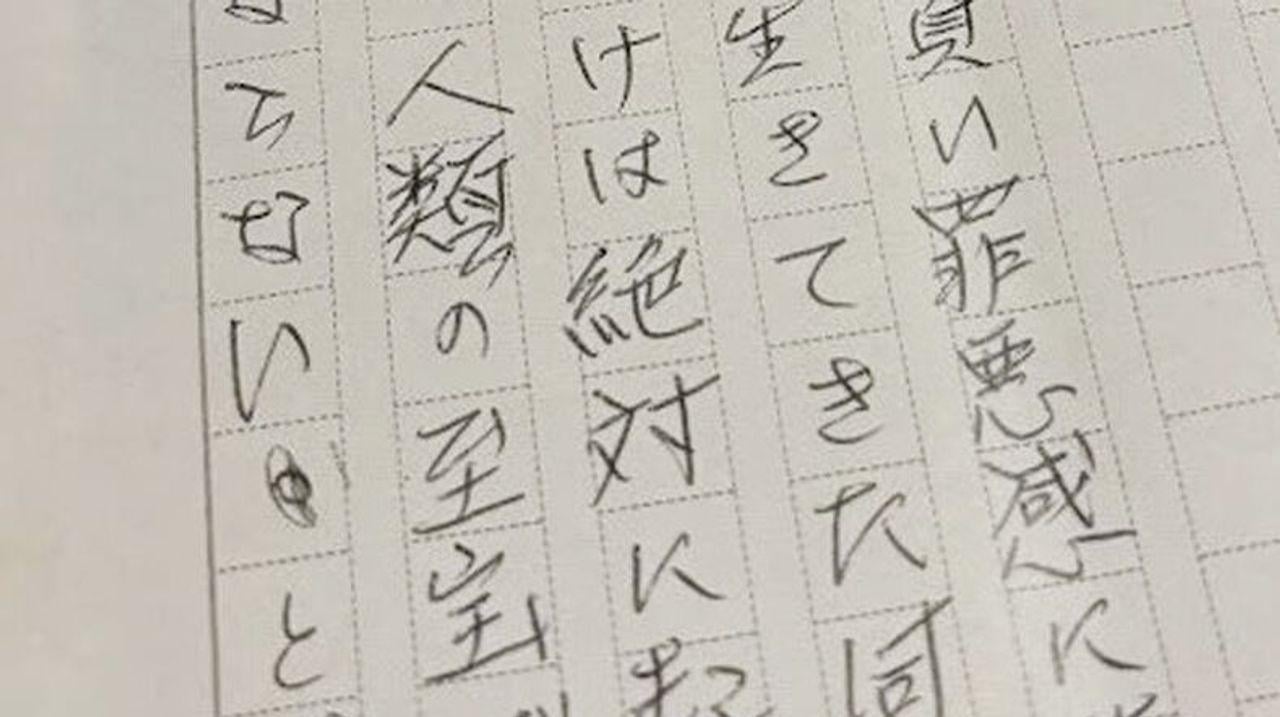 負い罪悪感に
生きてきた同
けは絶対に起
人類の至宝
でない。と